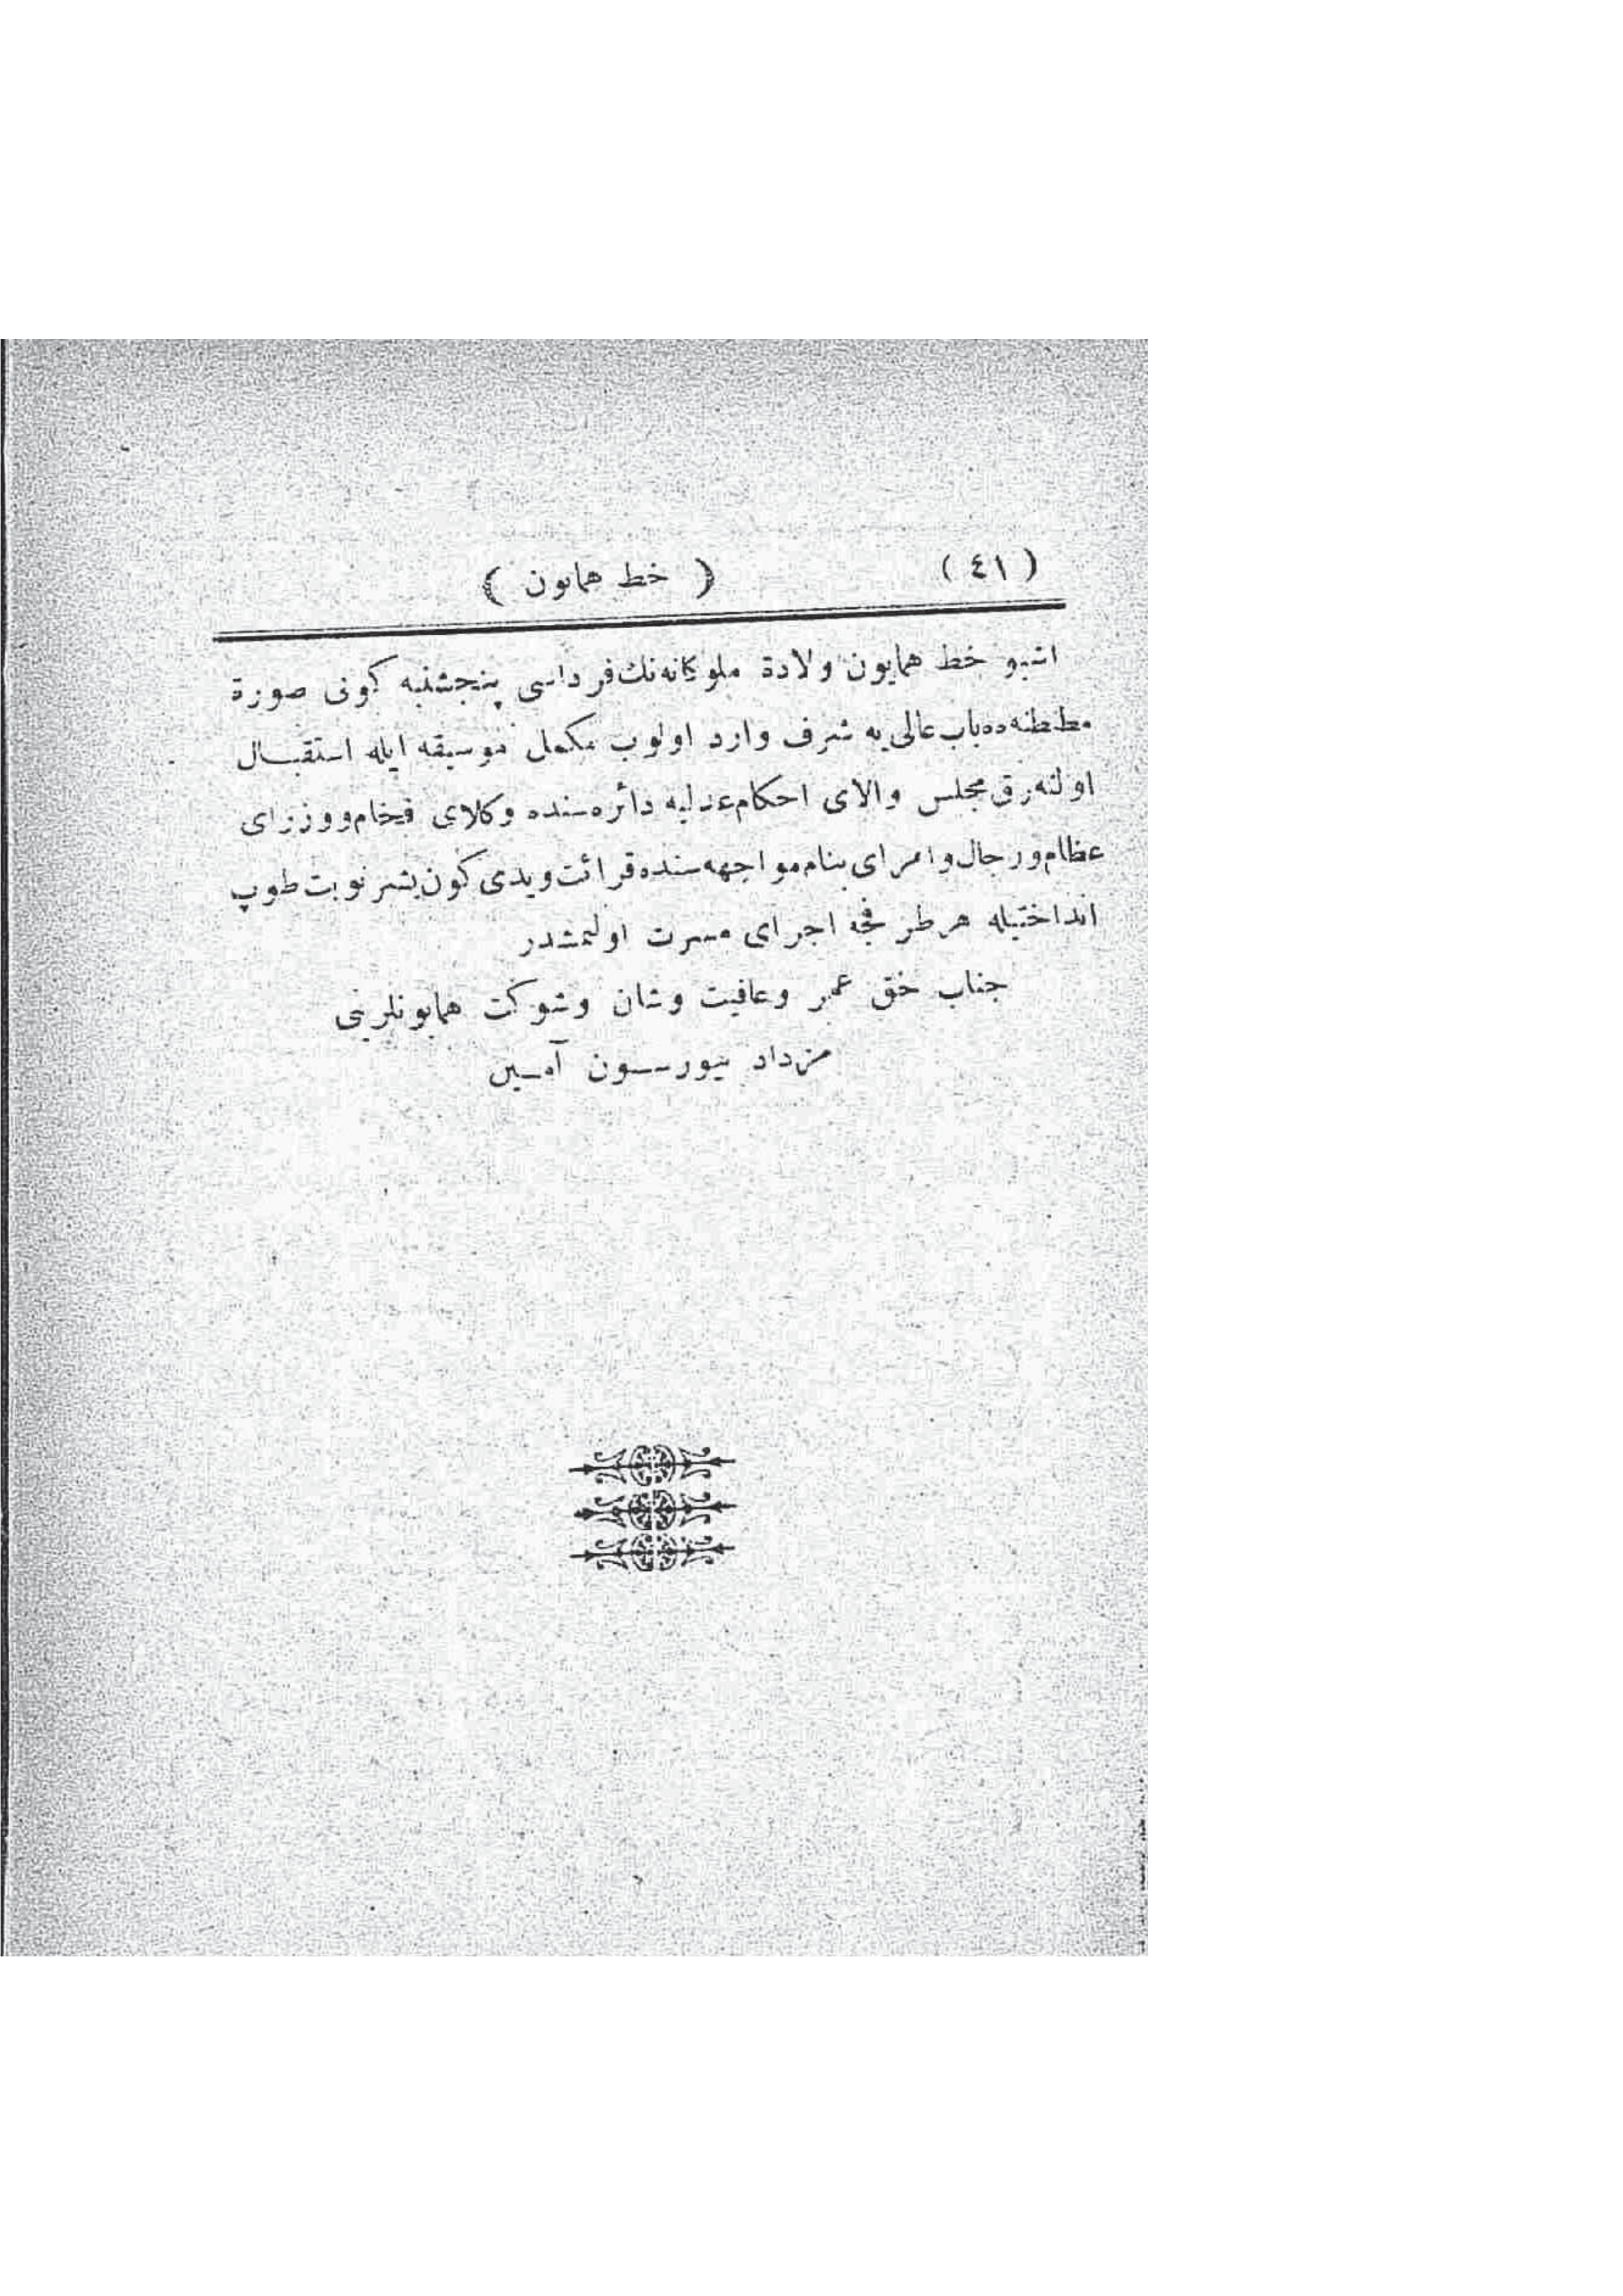 ( ٤١ )
( خط همايون )
اشبو خط همايون ولادة ملوكانه‌نك فرداسى پنجشنبه كونى صورة
مطنطنه‌ده باب عالى‌يه شرف وارد اولوب مكمل موسيقه ايله استقبال
اولنه‌رق مجلس والاى احكام عدليه دائره‌سنده وكلاى فخام ووزراى
عظام ورجال وامراى بنام مواجهه‌سنده قرائت ويدى كون بشر نوبت طوپ
انداختيله هر طرفجه اجراى مسرت اولنمشدر
جناب حق عمر وعافيت وشان وشوكت همايونلرينى
مزداد بيورسون آمين